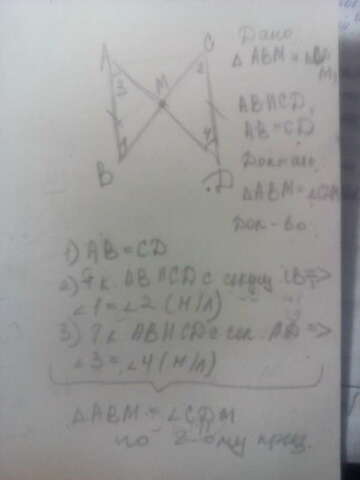 Дано
Δ ABM = Δ
M,
AB ∥ CD,
AB = CD
Док-ать
Δ ABM =
Док-во.
A
C
M
B
D
3
2
1
4
1) AB = CD
2) Т.к. AB ∥ CD с секущ. CB =>
∠1 = ∠2 (н/л)
3) Т.к AB ∥ CD с сек. AD =>
∠3 = ∠4 (н/л)
ΔABM = ∠CDM
по 2-ому приз.